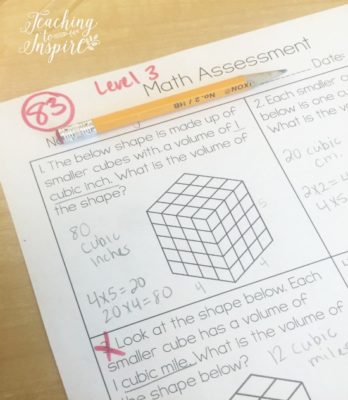 Teaching
to
Inspire
83
Level 3
Math Assessment
Date:
1. The below shape is made up of
smaller cubes with a volume of 1
cubic inch. What is the volume of
the shape?
80
cubic
inches
4x5=20
20x4=80
5
4
4
2. Each smaller
below is one cu
What is the vo
20 cubic
cm
2x2=4
4x5
Look at the shape below. Each
smaller cube has a volume of
1 cubic mile. What is the volume of
the shape below?
12 cubic
miles